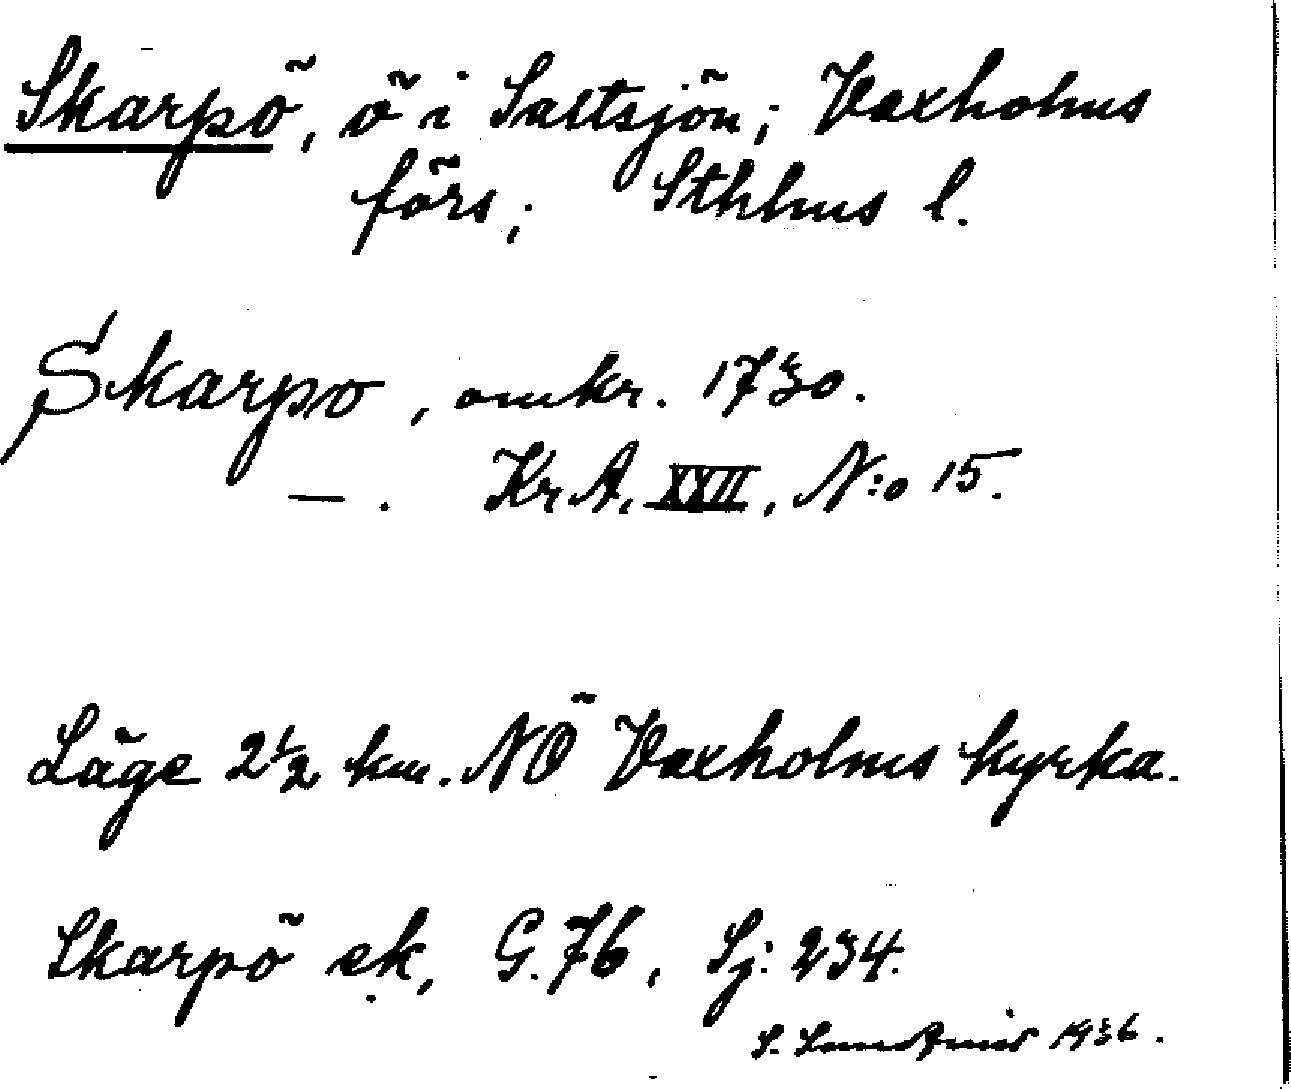 Skarpö, ö i Saltsjön; Vaxholms
förs; Sthlms l.
Skarpo, omkr. 1730.
—. Kr A. XXII, N:o 15.
Läge 2½ km. NÖ Vaxholms kyrka.
Skarpö ek, G. 76, Sj: 234.
S. 1936.